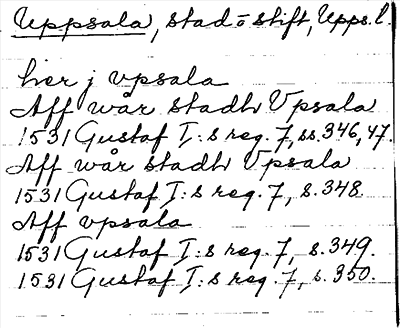 Uppsala, stad o stift, Upps. l.
her j vpsala
Aff wår stadh Vpsala
1531 Gustaf I:s reg. 7, ss. 346, 47.
Aff wår stadh Vpsala
1531 Gustaf I:s reg. 7, s. 348
Aff vpsala
1531 Gustaf I:s reg. 7, s. 349.
1531 Gustaf I:s reg. 7, s. 350.